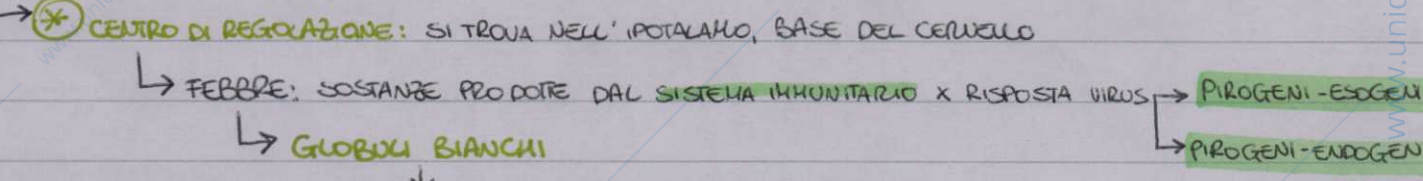 → * CENTRO DI REGOLAZIONE: SI TROVA NELL' IPOTALAMO, BASE DEL CERVELLO
↳ FEBBRE: SOSTANZE PRODOTTE DAL SISTEMA IMMUNITARIO X RISPOSTA VIRUS → PIROGENI-ESOGENI
↳ PIROGENI-ENDOGEN
↳ GLOBULI BIANCHI
www.unic